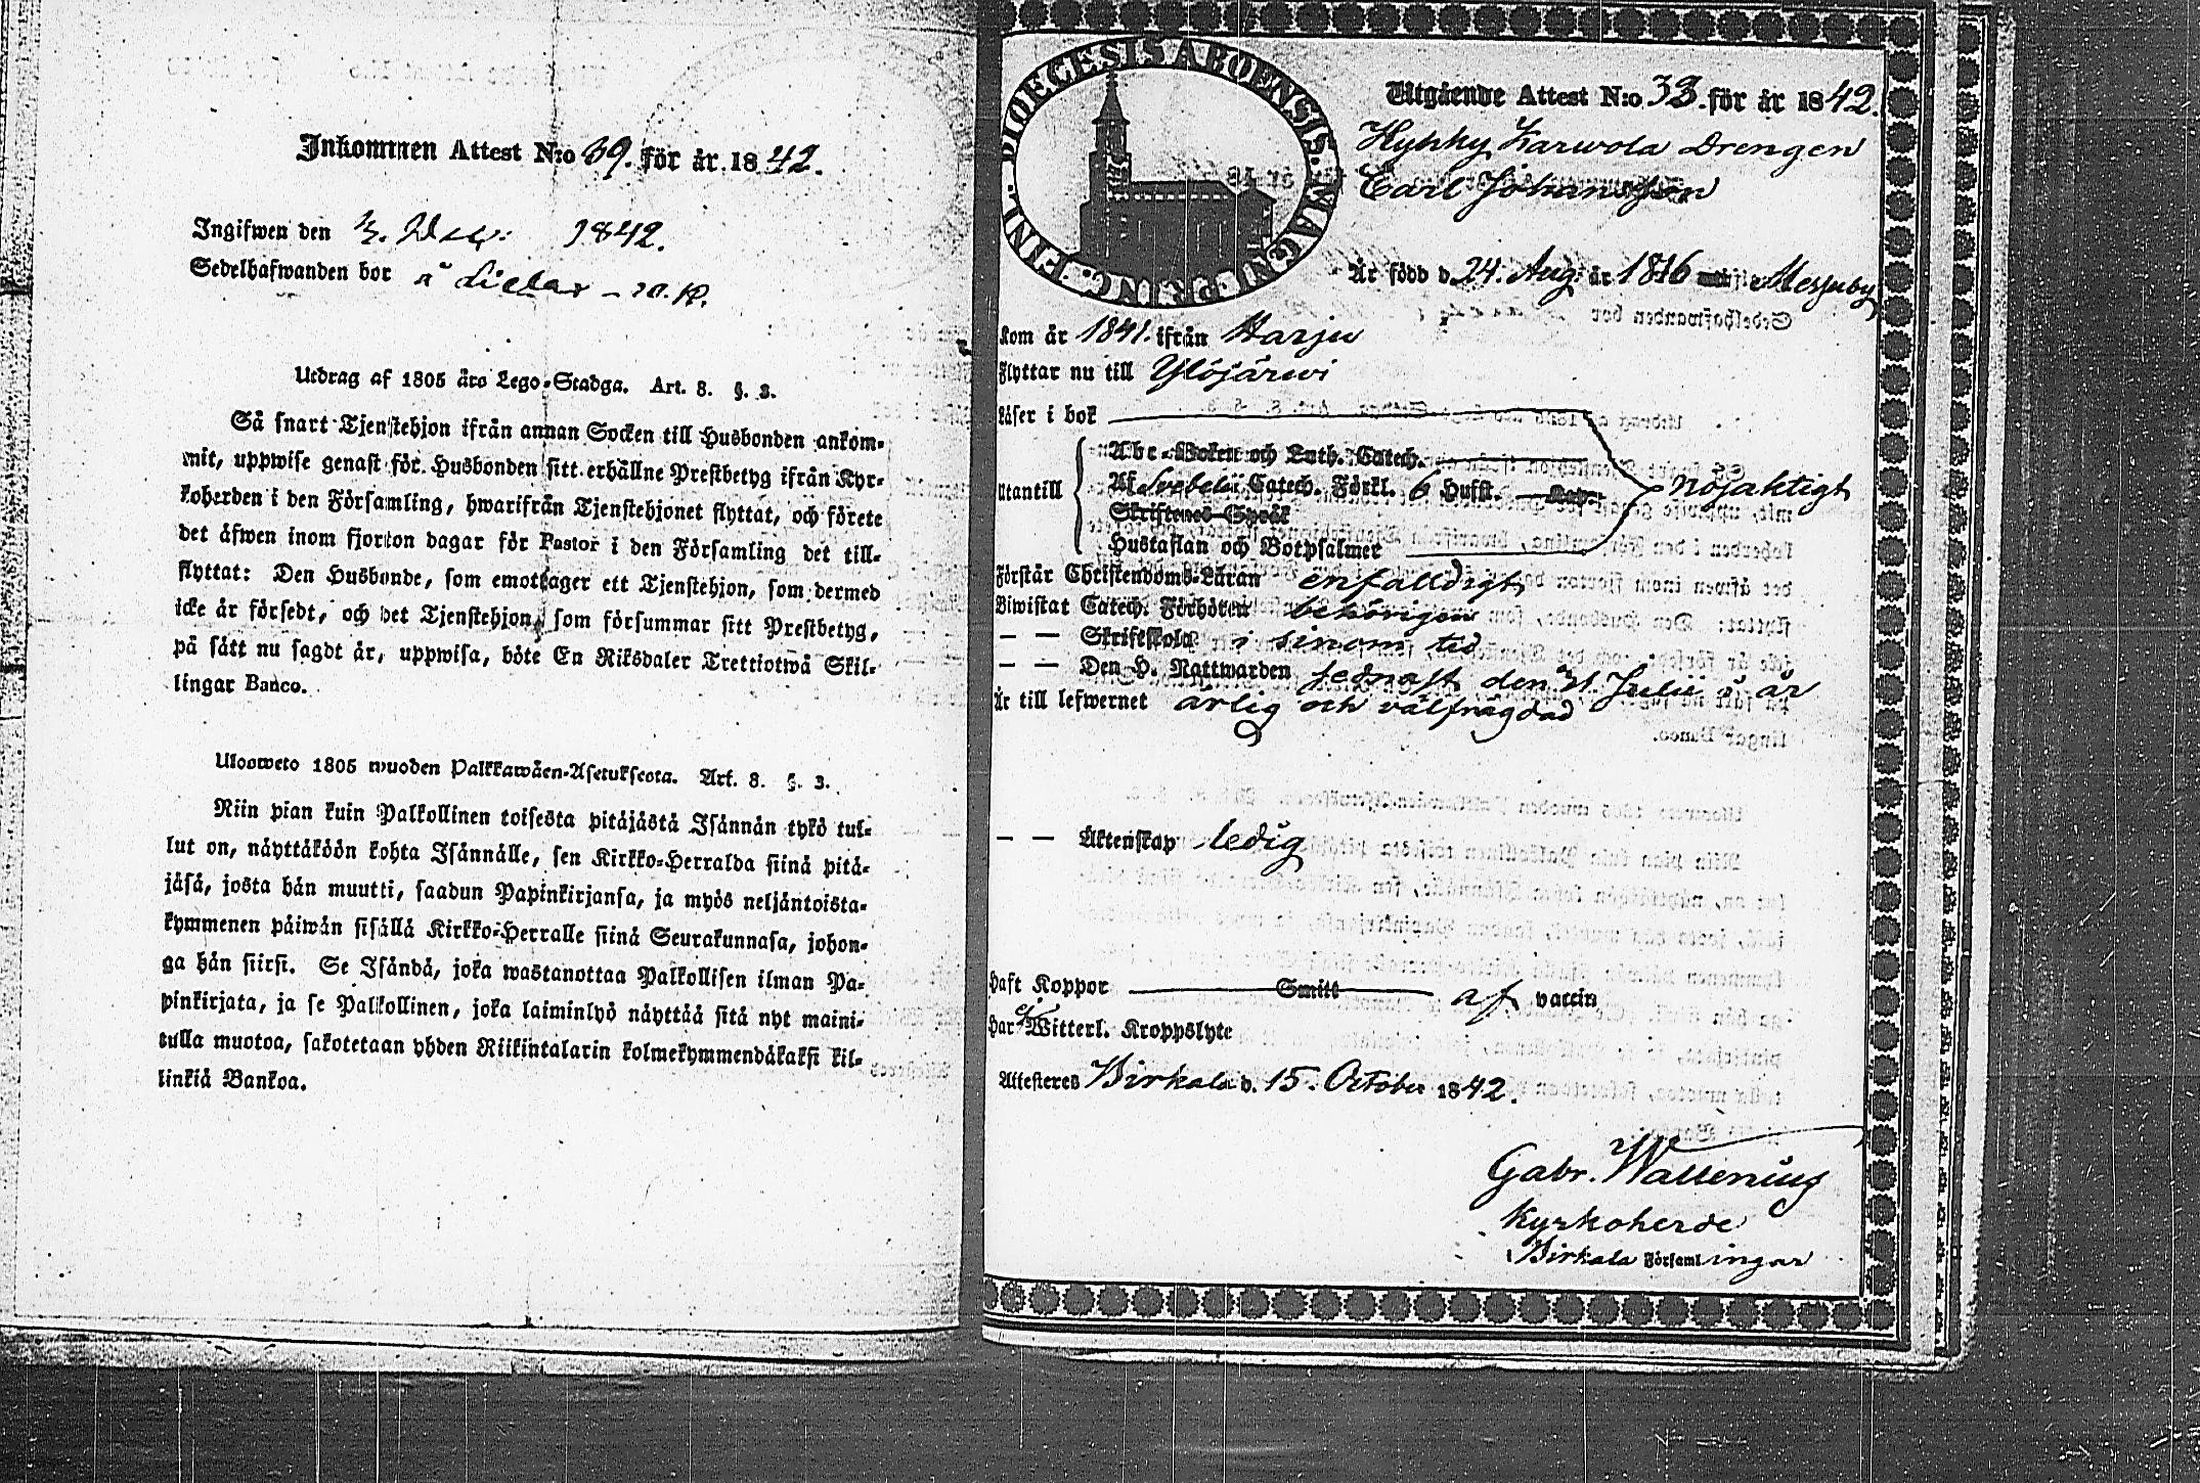 Inkommen Attest N:o 39. för år 1842.
Ingifwen den 3. 1842.
Sedelhafwanden bor
Utdrag af 1805 års Lego-Stadga. Art. 8. §. 3.
Så snart Tjenstehjon ifrån annan Socken till Husbonden ankom-
mit, uppwise genast för Husbonden sitt erhållne Prestbetyg ifrån Kyr-
koherden i den Församling, hwarifrån Tjenstehjonet flyttat, och förete
det äfwen inom fjorton dagar för Pastor i den Församling det till-
flyttat: Den Husbonde, som emottager ett Tjenstehjon, som dermed
icke är försedt, och det Tjenstehjon, som försummar sitt Prestbetyg,
på sätt nu sagdt är, uppwisa, böte En Riksdaler Trettiotwå Skil-
lingar Banco.
Ulosweto 1805 wuoden Palkkawäen-Asetuksesta. Art. 8. §. 3.
Niin pian kuin Palkollinen toisesta pitäjästä Isännän tykö tul-
lut on, näyttäköön kohta Isännälle, sen Kirkko-Herralda siinä pitä-
jäsä, josta hän muutti, saadun Papinkirjansa, ja myös neljäntoista-
kymmenen päiwän sisällä Kirkko-Herralle siinä Seurakunnasa, johon-
ga hän siirsi. Se Isändä, joka wastanottaa Palkollisen ilman Pa-
pinkirjata, ja se Palkollinen, joka laiminlyö näyttää sitä nyt maini-
tulla muotoa, sakotetaan yhden Riikintalarin kolmekymmendäkaksi kil-
linkiä Bankoa.
DIOECESIS ABOENSIS. MAGN. PRINC. FINL.
Utgående Attest N:o 33. för år 1842.
Hyhky Karwola Drengen
Carl Johansson
Är född d. 24. Aug. år 1816 i Messuby
kom år 1841. ifrån Harju
Flyttar nu till Ylöjärwi
Läser i bok
Abc-Boken och Luth. Catech.
Utantill Af Svebelii Catech. Förkl. 6 Hufst. nöjaktigt
Skriftenes Språk
Hustaflan och Botpsalmer
Förstår Christendoms-Läran enfalldigt
Biwistat Catech. Förhören behörigen
— — Skriftskola i sinom tid
— — Den H. Nattwarden sednast den Julii i år
Är till lefwernet ärlig och välfrägdad
— — Äktenskap ledig
Haft Koppor Smitt af vaccin
Har ej Witterl. Kroppslyte
Attesteres Birkala d. 15. October 1842.
Gabr. Wallenius
Kyrkoherde
Birkala Församlingar